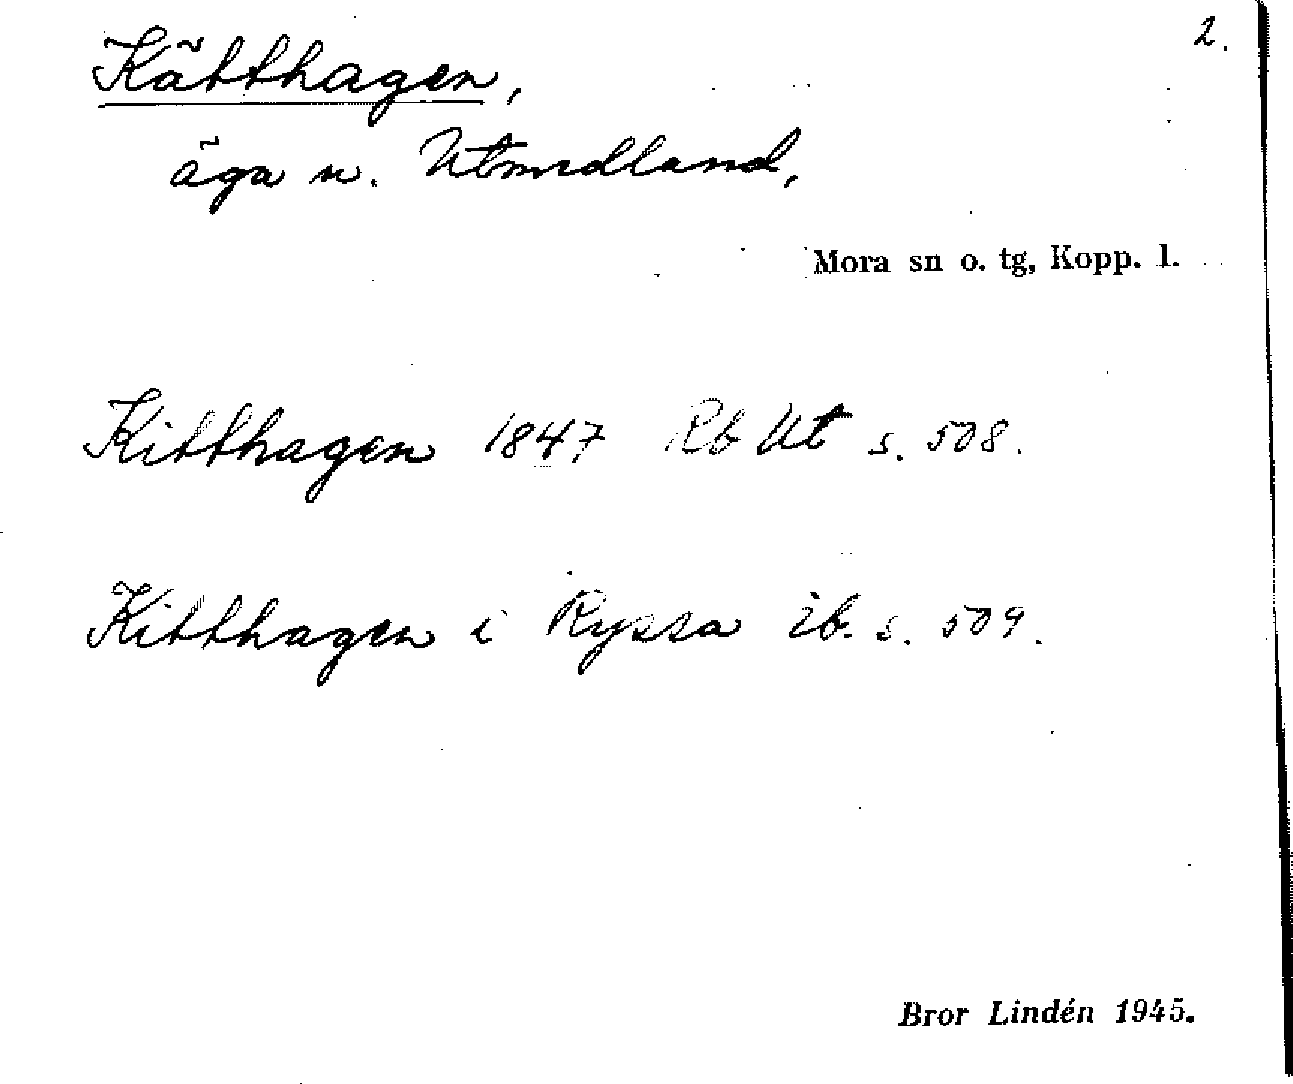 2.
Kätthagen,
äga n. Utmedland,
Mora sn o. tg, Kopp. l.
Kitthagen 1847 Rb Ut s. 508.
Kitthagen i Ryssa ib. s. 509.
Bror Lindén 1945.